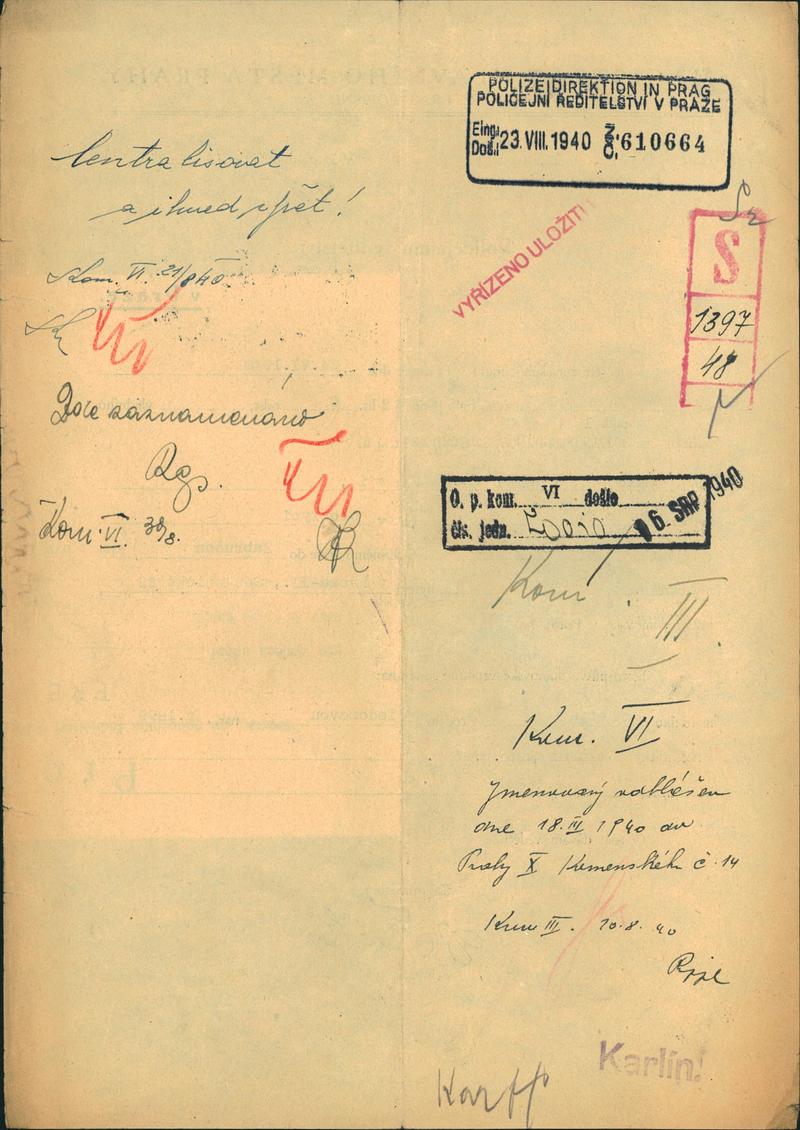 Centralisovat
a ihned zpět!
Kom. VI. 21/8 40.
Zde zaznamenáno
Rgs.
Kom. VI. 30/8.
POLIZEIDIREKTION IN PRAG
POLICEJNÍ ŘEDITELSTVÍ V PRAZE
Eing.
Doš. 23. VIII. 1940 Z. Č. 610664
VYŘÍZENO ULOŽIT!
S
1397
48
O. p. kom. VI došlo
čís. jedn. 16. SRP. 1940
Kom. III.
Kom. VI
Jmenovaný odhlášen
dne 18. III 1940 do
Prahy X č. 14
Kom III. 10. 8. 40
Karlín!